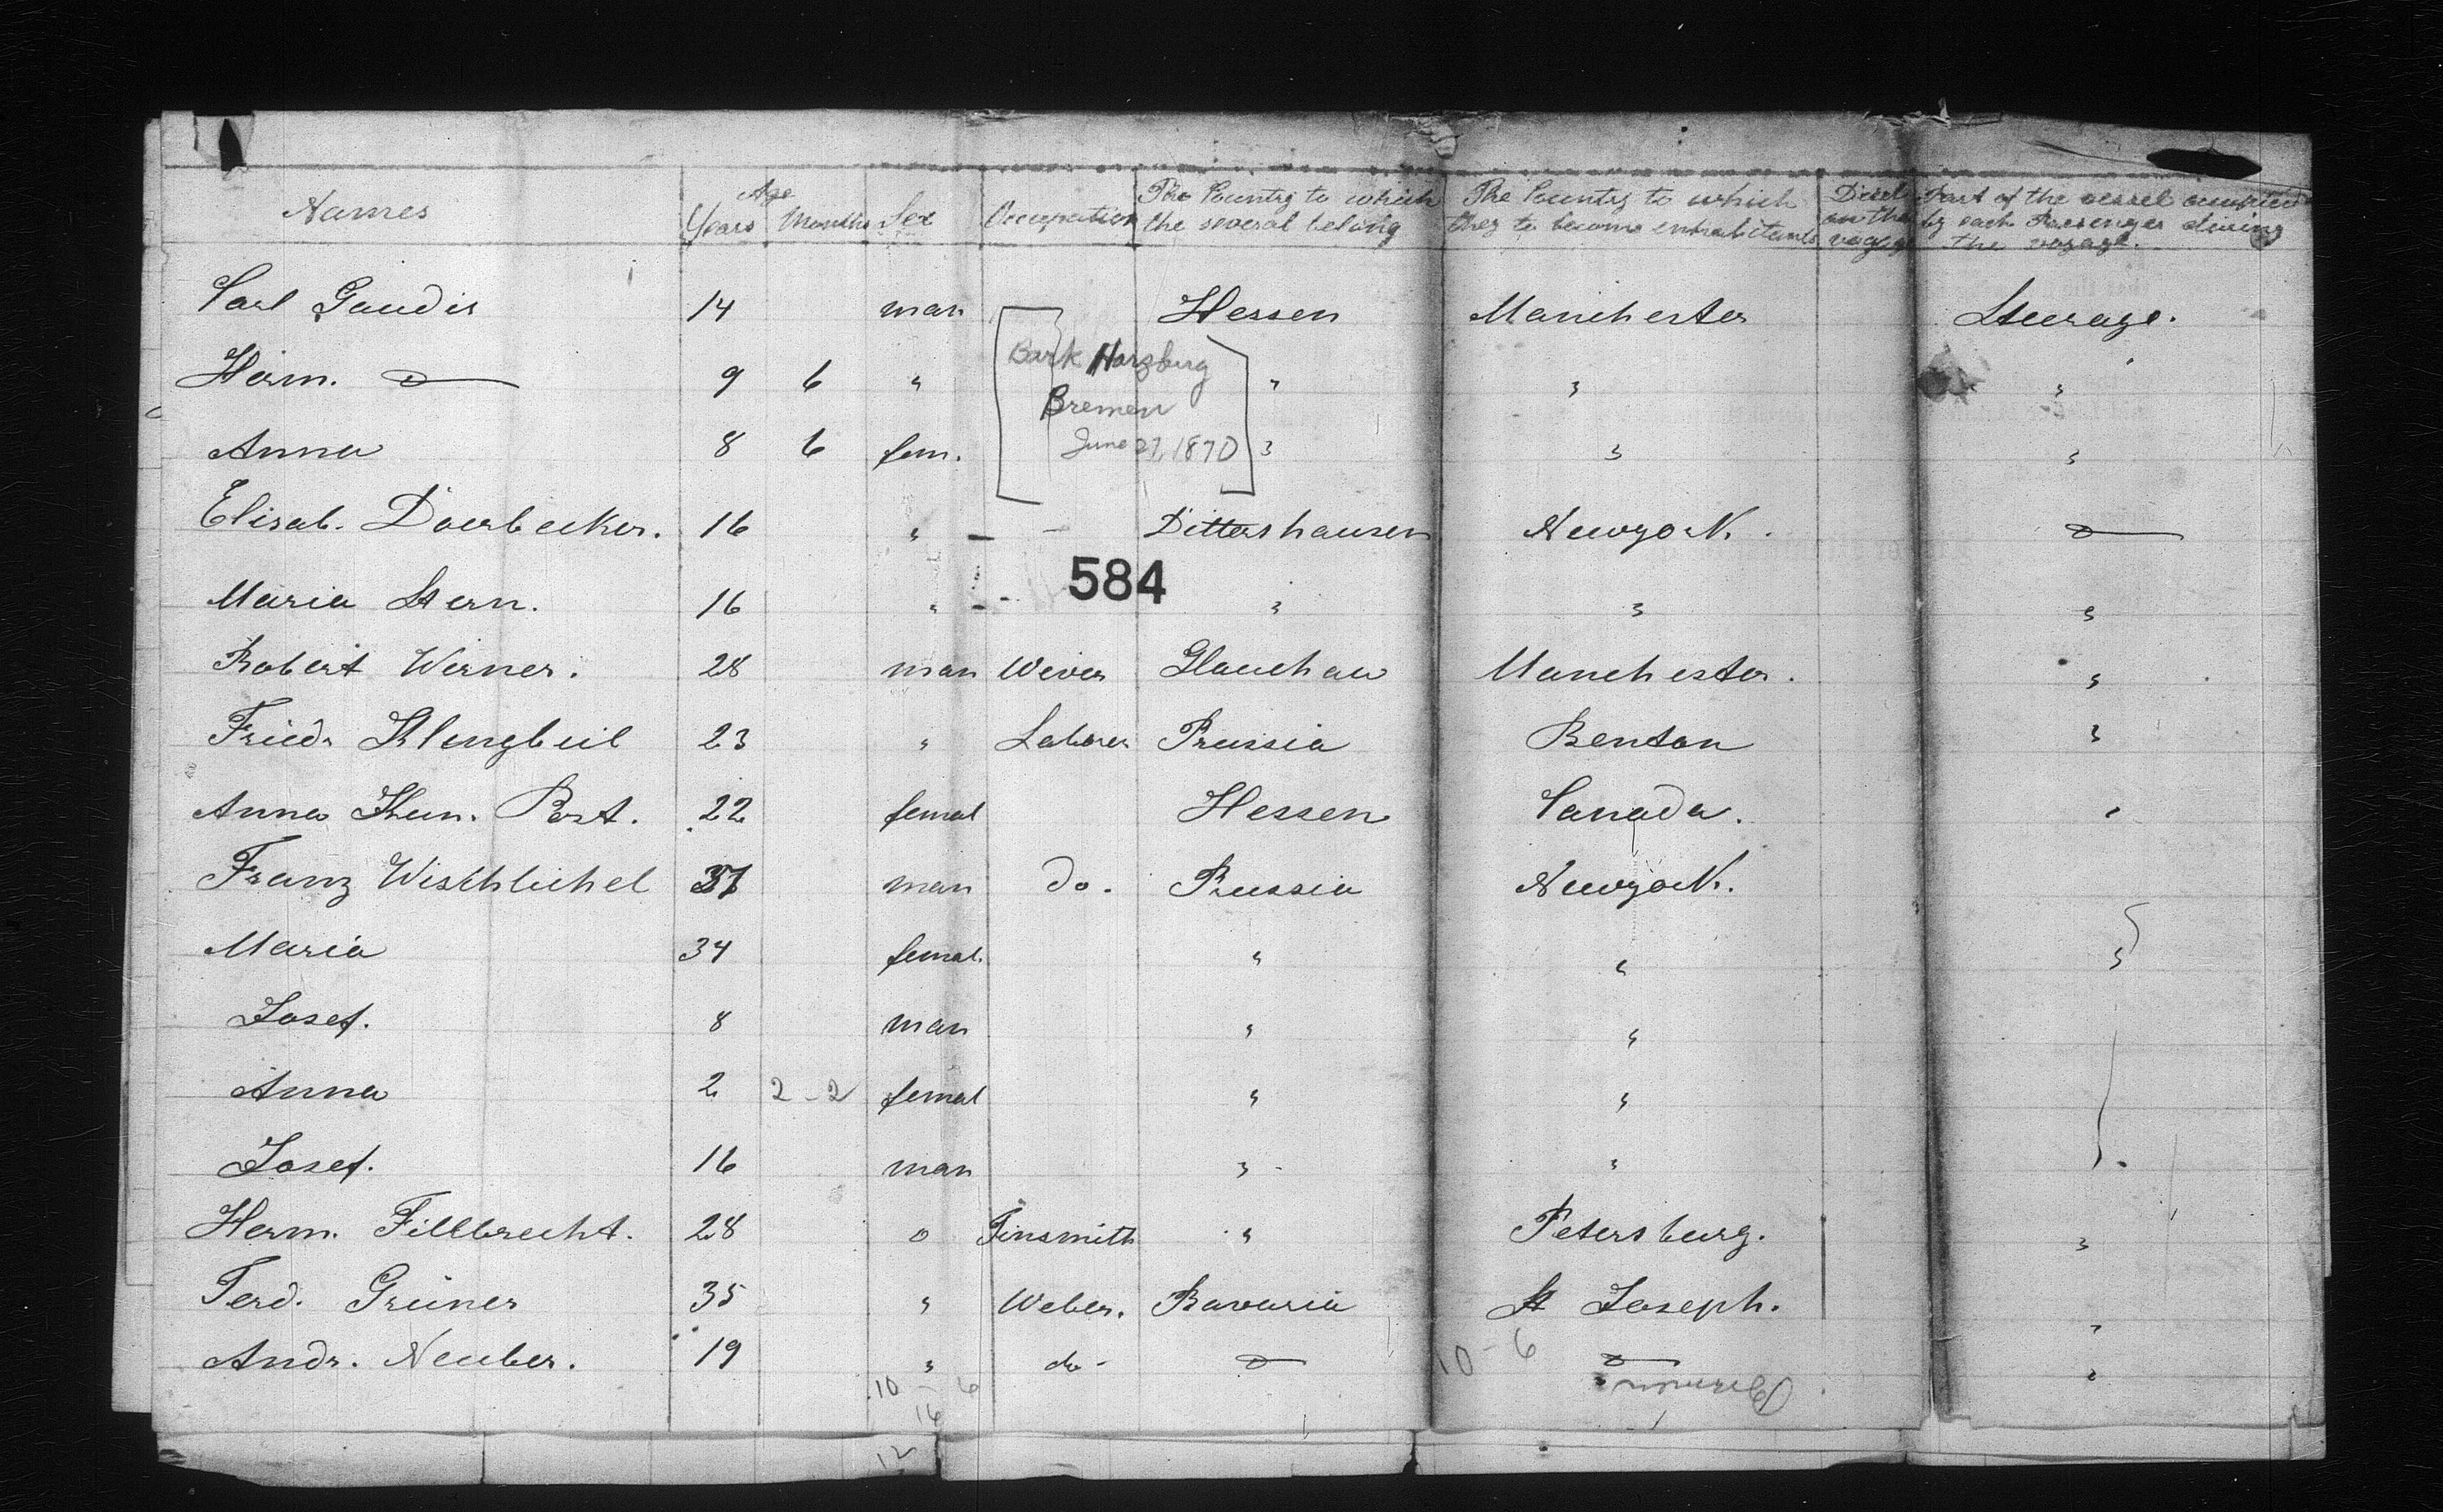 Names Age Years Months Sex Occupation The Country to which the several belong The Country to which they to become inhabitants Died on the voyage Part of the vessel occupied by each Passenger during the voyage.
Carl Gaudis 14 man Hessen Manchester Steerage.
Herm. " 9 6 " " " "
Bark Harzburg
Bremen
June 27, 1870
Anna 8 6 fem. " " "
Elisab. Doerbecker. 16 " — Dittershausen Newyork. "
584
Maria Stern. 16 " " " "
Robert Werner. 28 man Wever Glauchau Manchester. "
Friedr Klingbeil 23 " Laborer Prussia Benton "
Anna Kun. Post. 22 femal Hessen Canada. "
Franz Wischlichel 37 man do. Prussia Newyork.
Maria 34 femal. " " "
Josef. 8 man " "
Anna 2 2-2 femal " "
Josef. 16 man " "
Herm. Fillbrecht. 28 o Tinsmith " Petersburg. "
Ferd. Grüner 35 " Weber. Bavaria St Joseph. "
Andr. Neuber. 19 " do - " " "
10 - 6
10 - 6
16
12